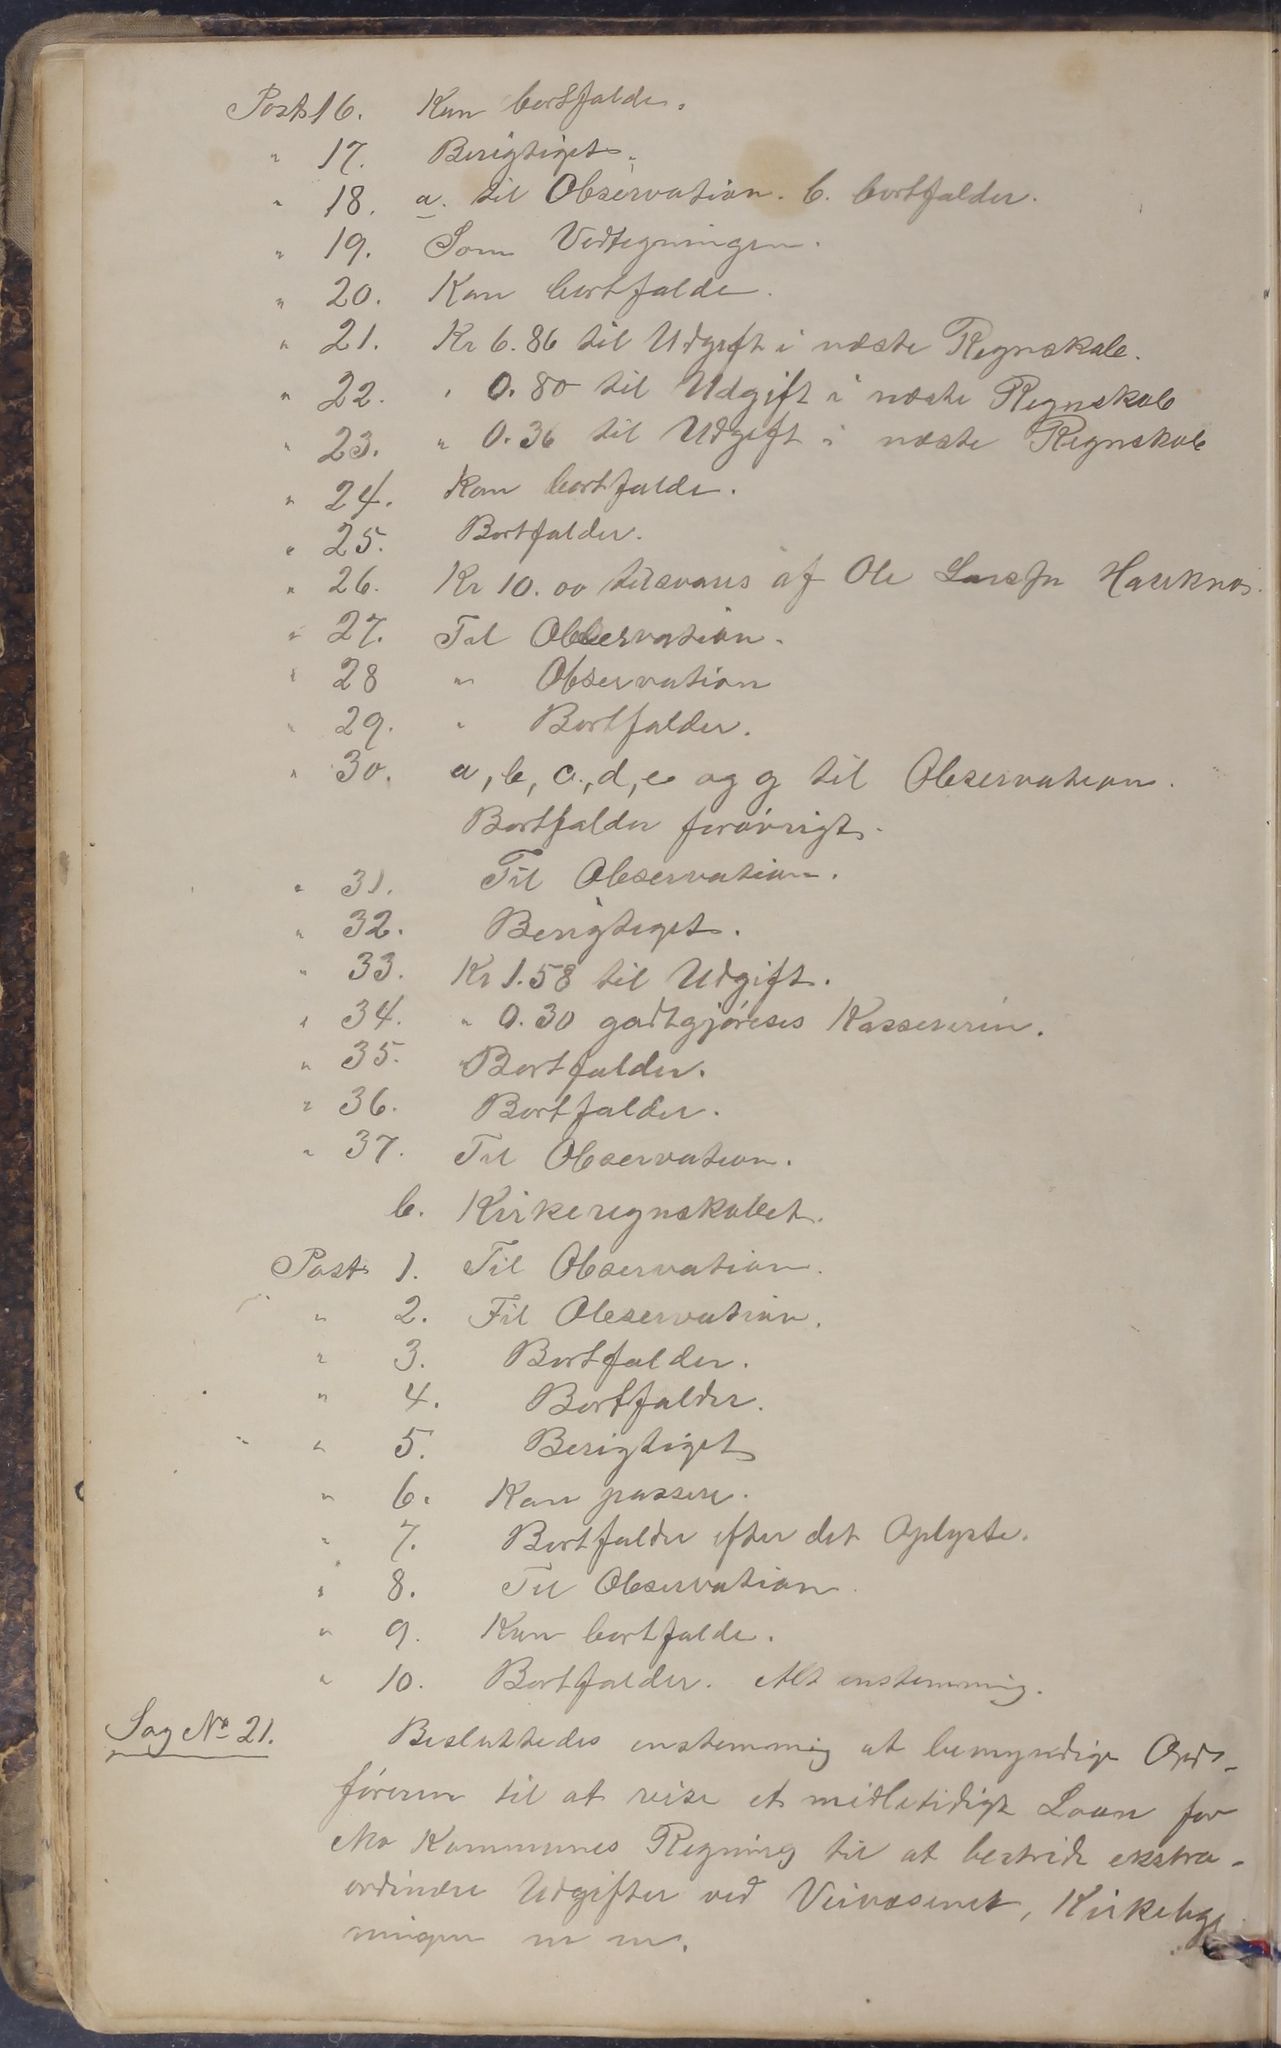 Post 16. Kan bortfalde.
" 17. Berigtiget.
" 18. a. til Observation. b. bortfalder.
" 19. Som Vedtegningen.
" 20. Kan bortfalde.
" 21. Kr 6.86 til Udgift i næste Regnskab.
" 22. " 0.80 til Udgift i næste Regnskab
" 23. " 0.36 til Udgift i næste Regnskab
" 24. Kan bortfalde.
" 25. Bortfalder.
" 26. Kr 10.00 tilsvares af Ole Larsfn Hauknes.
" 27. Til Observation.
" 28 " Observation
" 29. " Bortfalder.
" 30. a, b, c., d, e og g til Observation.
Bortfalder forøvrigt.
" 31. Til Observation.
" 32. Berigtiget.
" 33. Kr 1.58 til Udgift.
" 34. " 0.30 godtgjøreses Kassereren.
" 35. Bortfalder.
" 36. Bortfalder.
" 37. Til Observation.
b. Kirkeregnskabet.
Post 1. Til Observation.
" 2. Til Observation.
" 3. Bortfalder.
" 4. Bortfalder.
" 5. Berigtiget
" 6. Kan passere.
" 7. Bortfalder efter det Oplyste.
" 8. Til Observation.
" 9. Kan bortfalde.
" 10. Bortfalder. Alt enstemmig.
Sag No 21. Besluttedes enstemmig at bemyndige Ord-
føreren til at reise et midletidigt Laan for
Mo Kommunes Regning til at bestride ekstra-
ordinære Udgifter ved Veivæsenet, Kirkebyg
ningen m m.